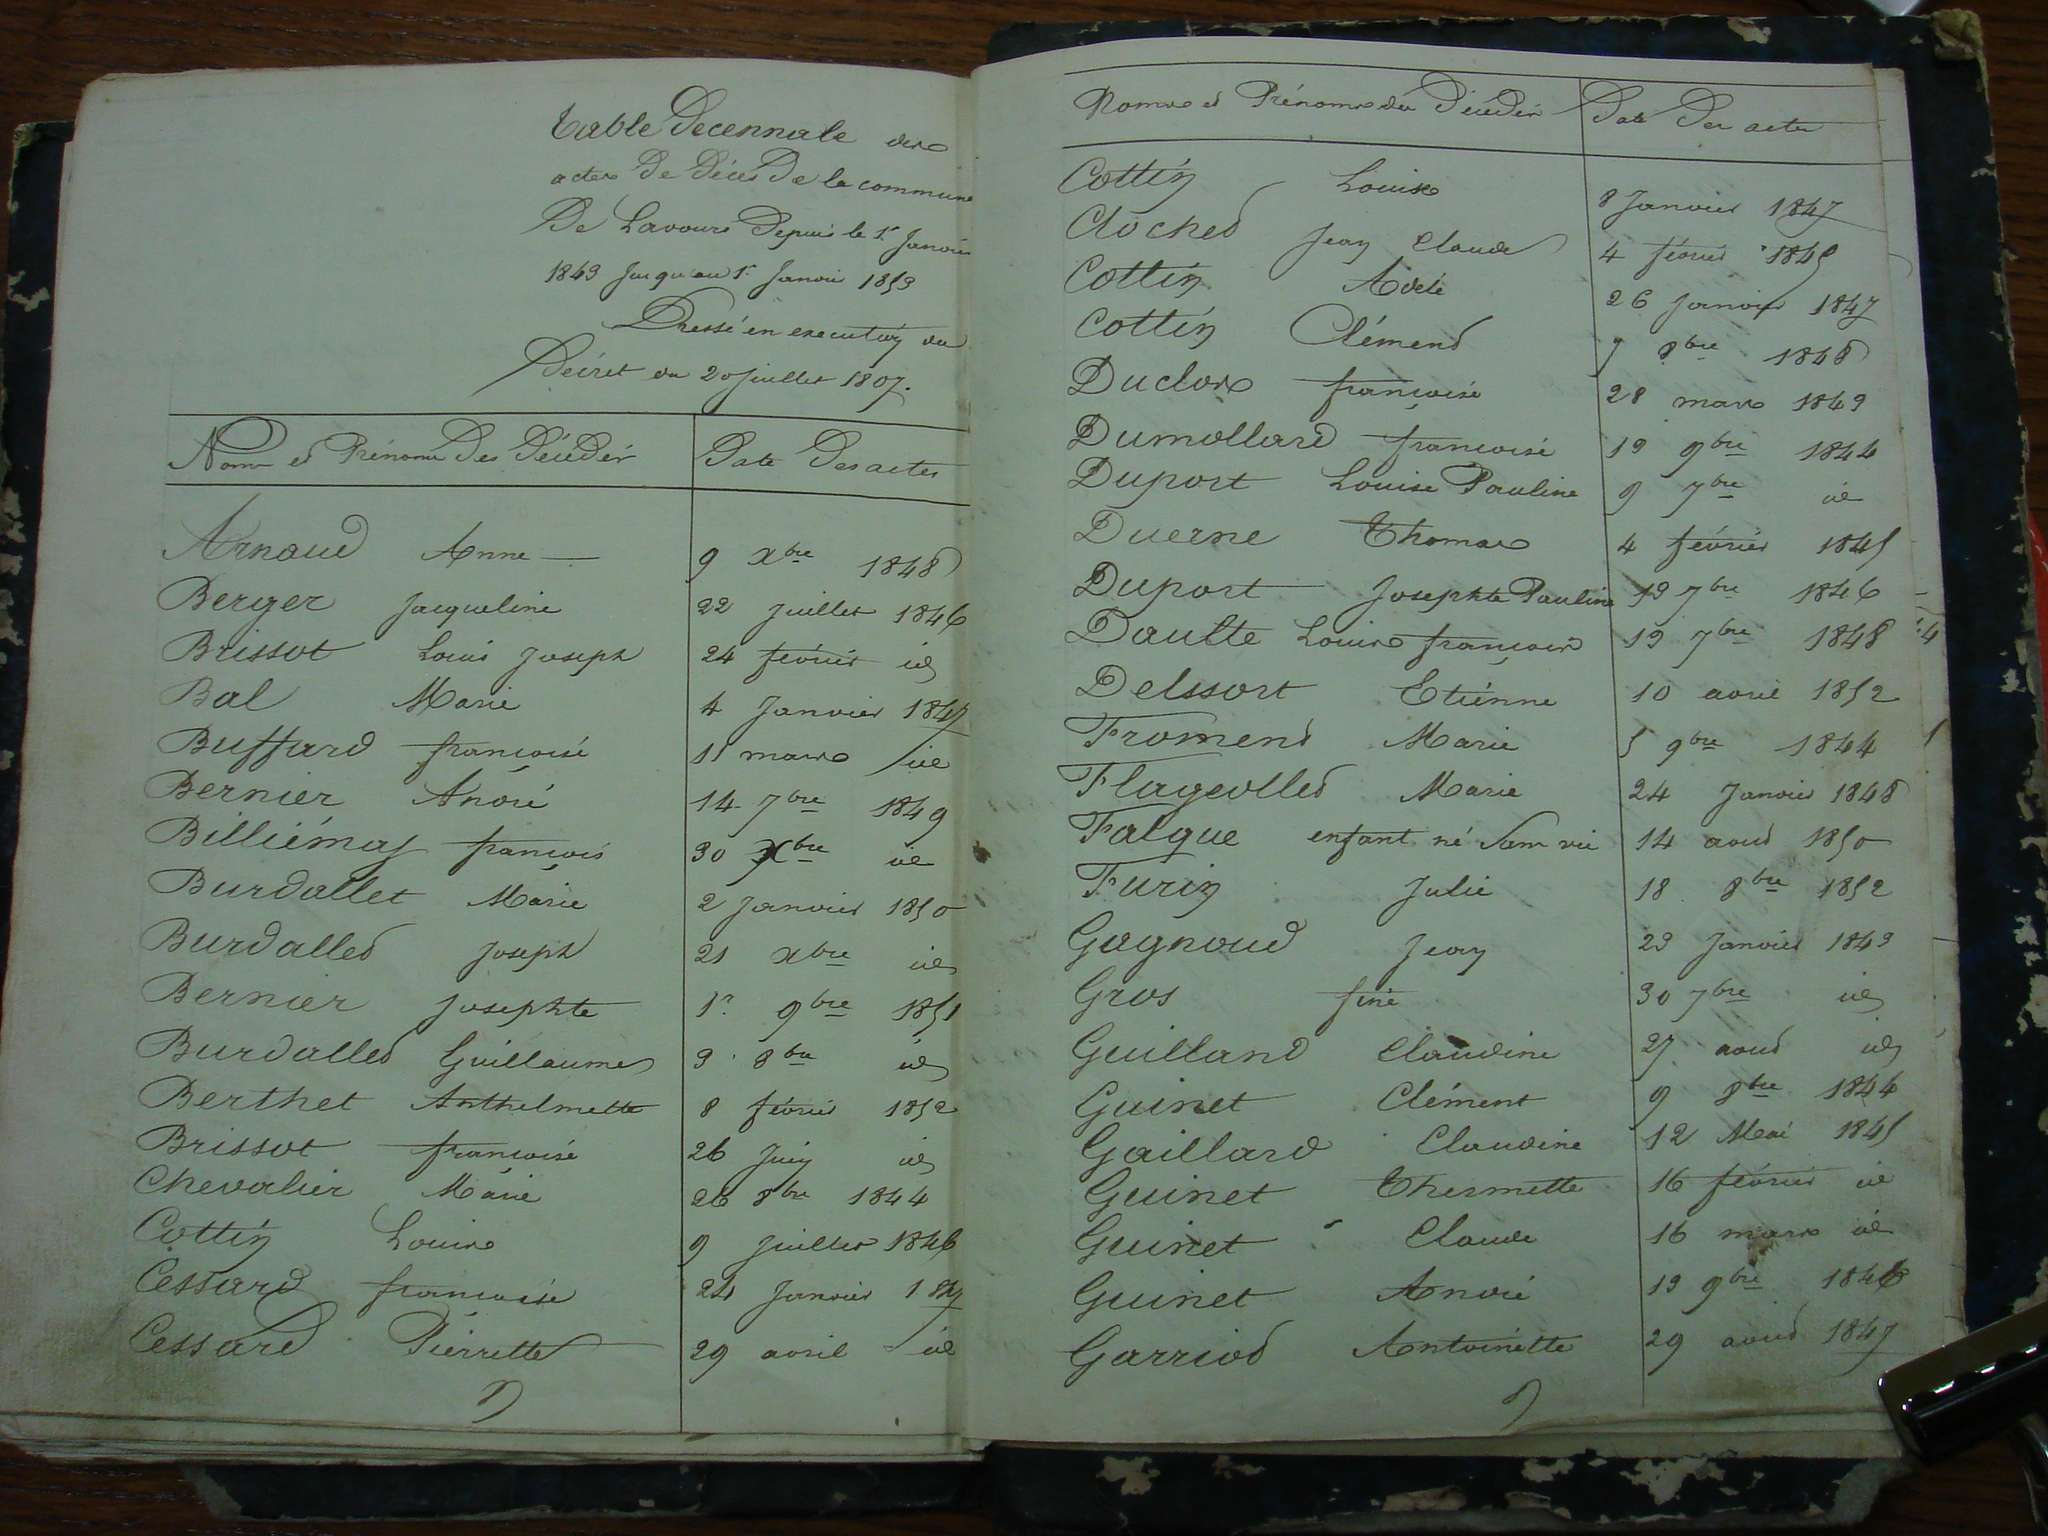 Table Decennale des
actes De Décès De la commune
De Lavours Depuis le 1r Janvier
1843 Jusqu'au 1r Janvier 1853
Dressé en execution du
Décret du 20 juillet 1807.
Noms et Prénoms Des Décédés Date Des actes
Arnaud Anne 9 Xbre 1848
Berger Jacqueline 22 Juillet 1846
Brissot Louis Joseph 24 février id
Bal Marie 4 Janvier 1847
Buffard françoise 11 mars id
Bernier André 14 7bre 1849
Billiémas françois 30 Xbre id
Burdallet Marie 2 Janvier 1850
Burdallet Joseph 21 xbre id
Bernier Josephte 1r 9bre 1851
Burdallet Guillaume 9 8bre id
Berthet Anthelmette 8 février 1852
Brissot françoise 26 Juin id
Chevalier Marie 26 8bre 1844
Cottin Louise 9 Juillet 1846
Cessard françoise 24 Janvier 1847
Cessard Pierrette 29 avril id
Noms et Prénoms des Décédés Date Des actes
Cottin Louise 8 Janvier 1847
Clochet Jean Claude 4 février 1845
Cottin Adele 26 Janvier 1847
Cottin Clément 7 8bre 1848
Duclos françoise 28 mars 1849
Dumollard françoise 19 9bre 1844
Duport Louise Pauline 9 7bre id
Duerne Thomas 4 février 1845
Duport Josephte Pauline 19 7bre 1846
Dautte Louis françois 19 7bre 1848
Delssort Etiénne 10 avril 1852
Froment Marie 5 9bre 1844
Flageollet Marie 24 Janvier 1848
Falque enfant né sans vie 14 aout 1850
Furin Julie 18 8bre 1852
Gagnoud Jean 23 Janvier 1843
Gros fine 30 7bre id
Guilland Claudine 27 aout id
Guinet Clément 9 8bre 1844
Gaillard Claudine 12 Mai 1845
Guinet Thermette 16 février id
Guinet Claude 16 mars id
Guinet André 19 9bre 1846
Garriod Antoinette 29 aout 1847